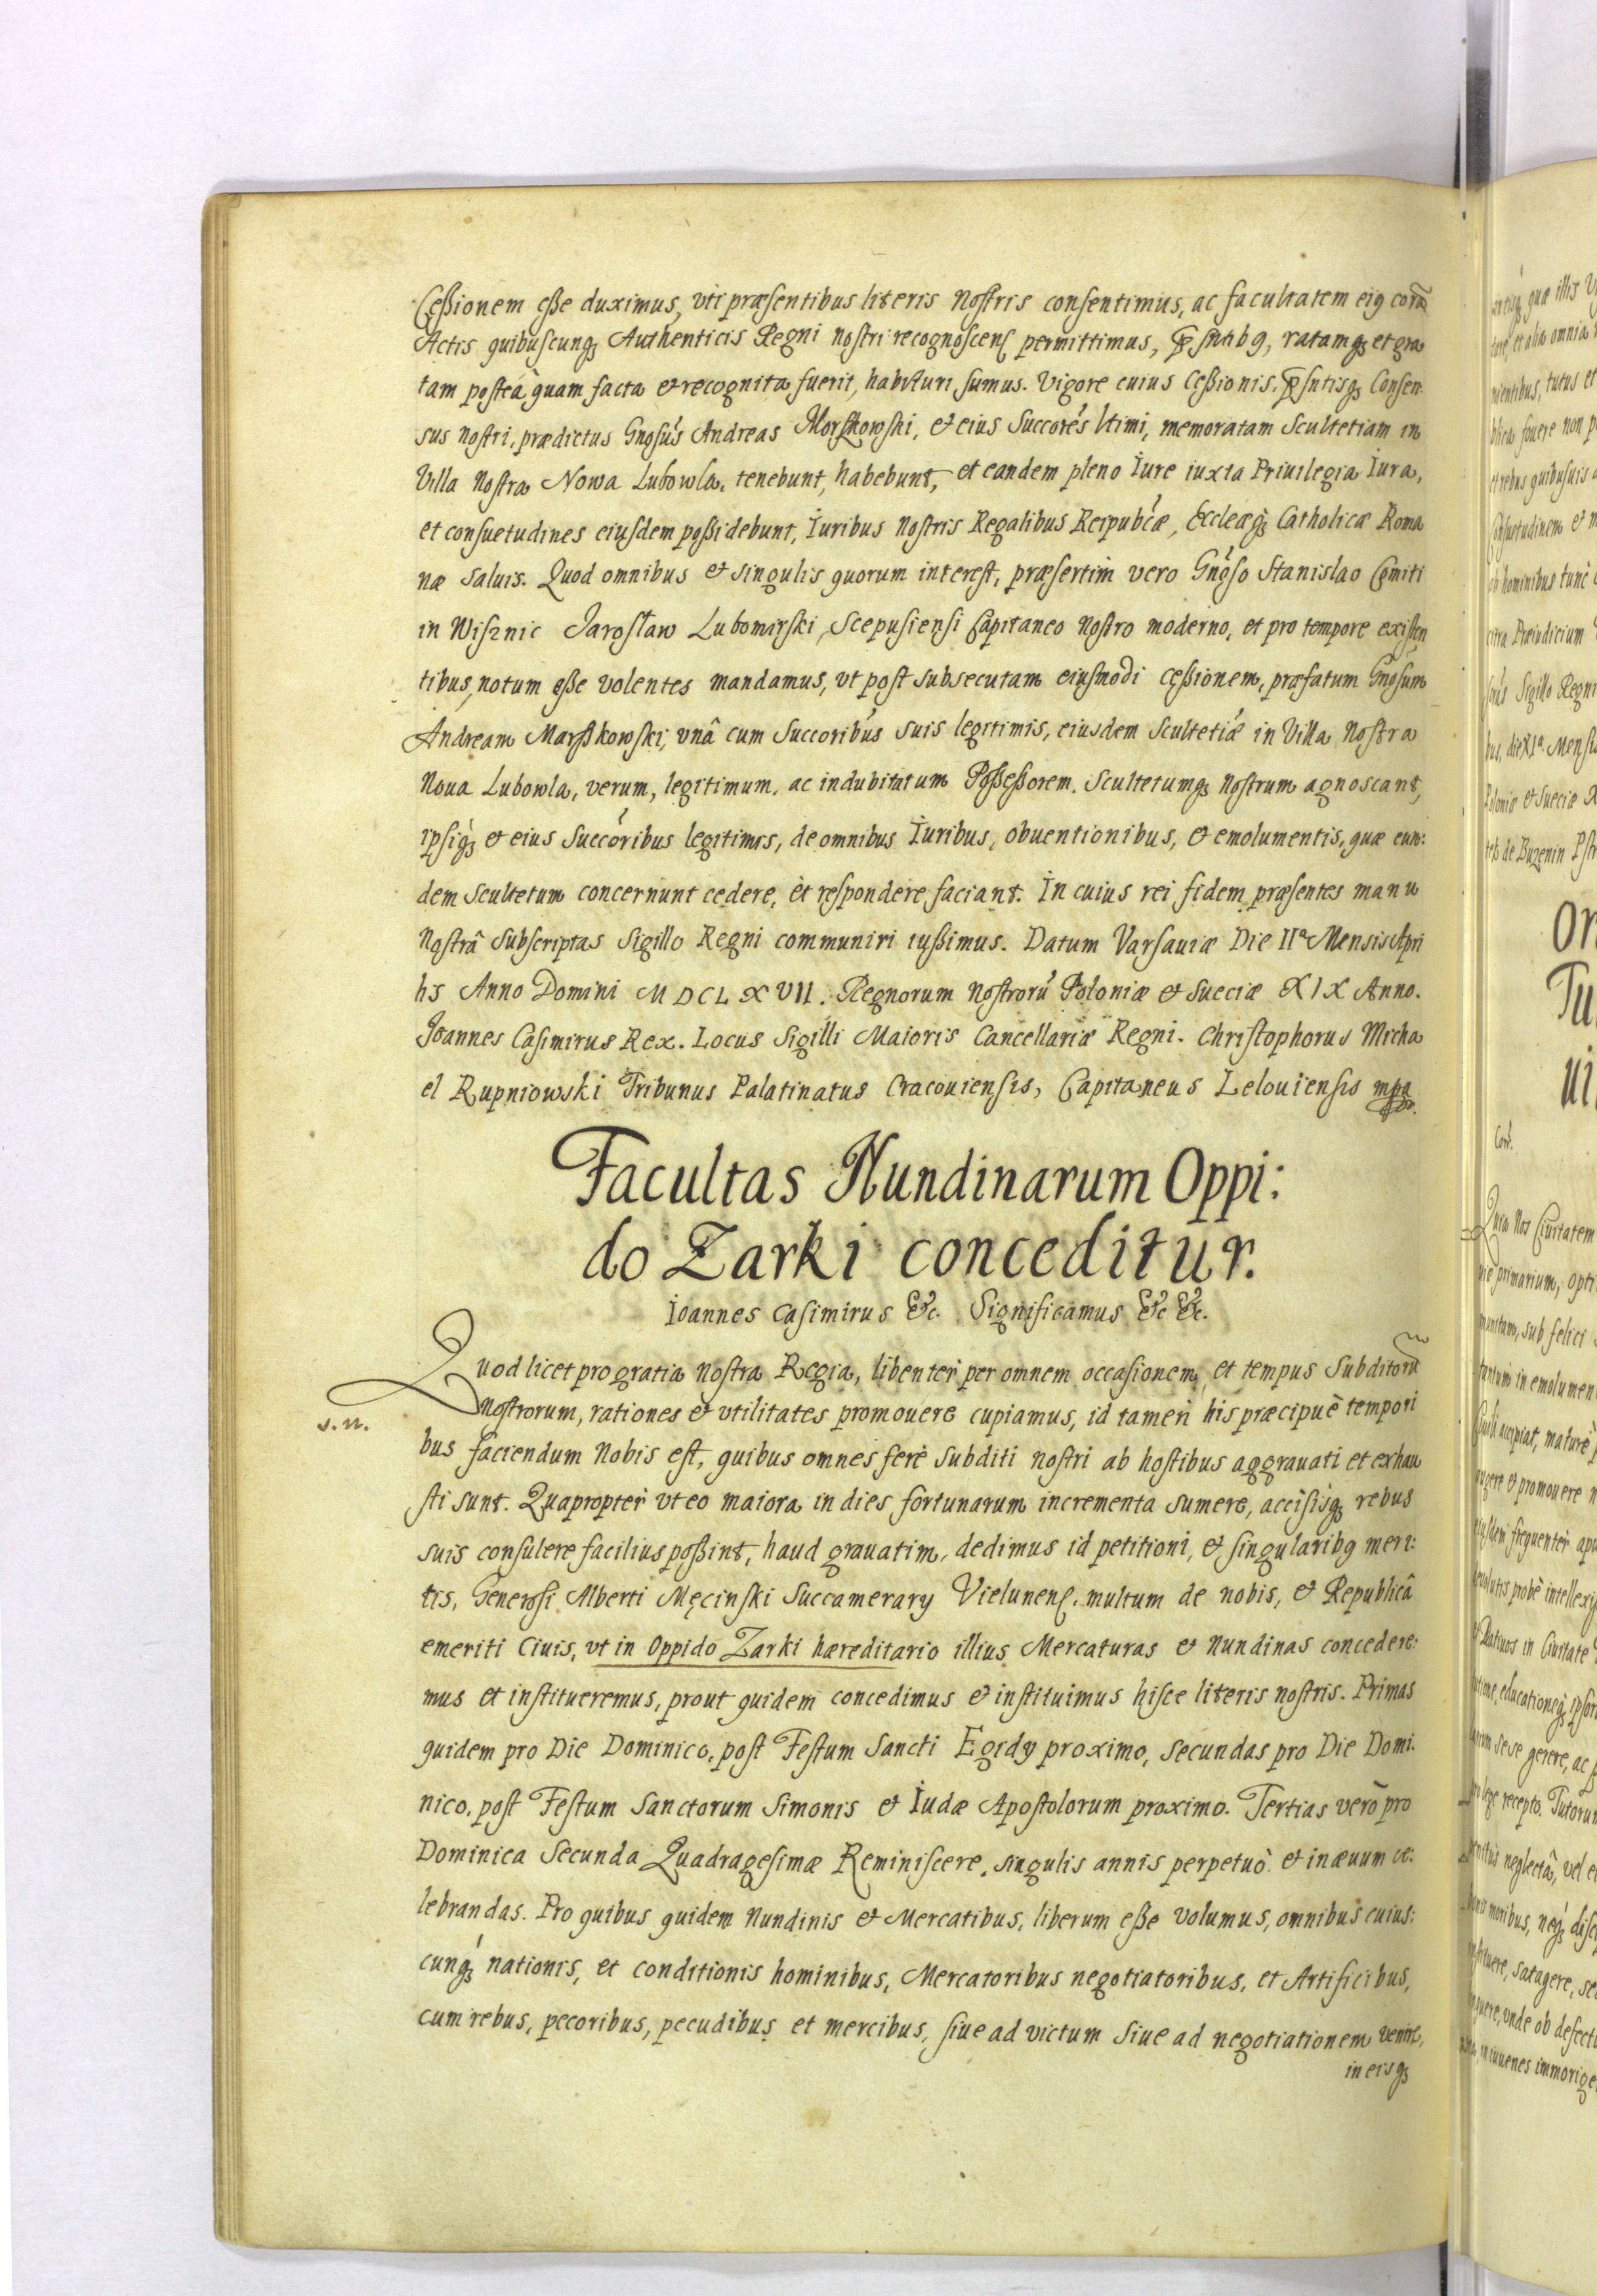 Ceßionem eße duximus, vti præsentibus literis nostris consentimus, ac facultatem eiq corã
Actis quibuscunq Authenticis Regni nostri recognoscens permittimus, ꝑsntibq, ratamq et gra
tam posteà quam facta et recognita fuerit, habituri sumus. Vigore cuius Ceßionis, ꝑsntisq Consen:
sus nostri, prædictus Gnosus Andreas Morskowski, et eius Succores ltimi, memoratam Scultetiam in
Villa nostra Nowa Lubowla, tenebunt, habebunt, et eandem pleno Iure iuxta Priuilegia Iura,
et consuetudines eiusdem poßidebunt, Iuribus nostris Regalibus Reipubcæ, Eccleæq Catholicæ Roma
næ saluis. Quod omnibus et singulis quorum interest, præsertim vero Gnoso Stanislao Comiti
in Wisznic Jarosław Lubomirski, Scepusiensi Capitaneo nostro moderno, et pro tempore existen
tibus, notum eße volentes mandamus, vt post subsecutam eiusmodi ceßionem, præfatum Gnosum
Andream Marßkowski, vnâ cum Succoribus suis legitimis, eiusdem Scultetiæ in Villa Nostra
Noua Lubowla, verum, legitimum, ac indubitatum Poßeßorem, Scultetumq nostrum agnoscant,
ipsiq et eius Succoribus legitimis, de omnibus Iuribus, obuentionibus, et emolumentis, quæ eun:
dem Scultetum concernunt cedere, et respondere faciant. In cuius rei fidem præsentes manu
nostrâ subscriptas Sigillo Regni communiri iußimus. Datum Varsauiæ Die IIa Mensis Apri
lis Anno Domini MDCLXVII. Regnorum nostrorũ Poloniæ et Sueciæ XIX Anno.
Joannes Casimirus Rex. Locus Sigilli Maioris Cancellariæ Regni. Christophorus Micha
el Rupniowski Tribunus Palatinatus Cracouiensis, Capitaneus Lelouiensis mpa
Facultas Nundinarum Oppi:
do Zarki conceditur.
Ioannes Casimirus &c. Significamus &c &c.
Quod licet pro gratia nostra Regia, libenter per omnem occasionem, et tempus Subditorũ
nostrorum, rationes et vtilitates promouere cupiamus, id tamen his præcipuè tempori
bus faciendum Nobis est, quibus omnes ferè Subditi nostri ab hostibus aggrauati et exhau
sti sunt. Quapropter vt eo maiora in dies fortunarum incrementa sumere, accisisq rebus
suis consulere facilius poßint, haud grauatim, dedimus id petitioni, et singularibq meri:
tis, Generosi Alberti Męcinski Succamerary Vielunens. multum de nobis, et Republicâ
emeriti Ciuis, vt in Oppido Zarki hæreditario illius Mercaturas et Nundinas concedere:
mus et institueremus, prout quidem concedimus et instituimus hisce literis nostris. Primas
quidem pro Die Dominico, post Festum Sancti Egidy proximo, secundas pro Die Domi:
nico, post Festum Sanctorum Simonis et Iudæ Apostolorum proximo. Tertias verò pro
Dominica Secunda Quadragesimæ Reminiscere, singulis annis perpetuò et in æuum ce:
lebrandas. Pro quibus quidem Nundinis et Mercatibus, liberum eße volumus, omnibus cuius:
cunq nationis, et conditionis hominibus, Mercatoribus negotiatoribus, et Artificibus,
cum rebus, pecoribus, pecudibus et mercibus, siue ad victum siue ad negotiationem venire,
in eisq